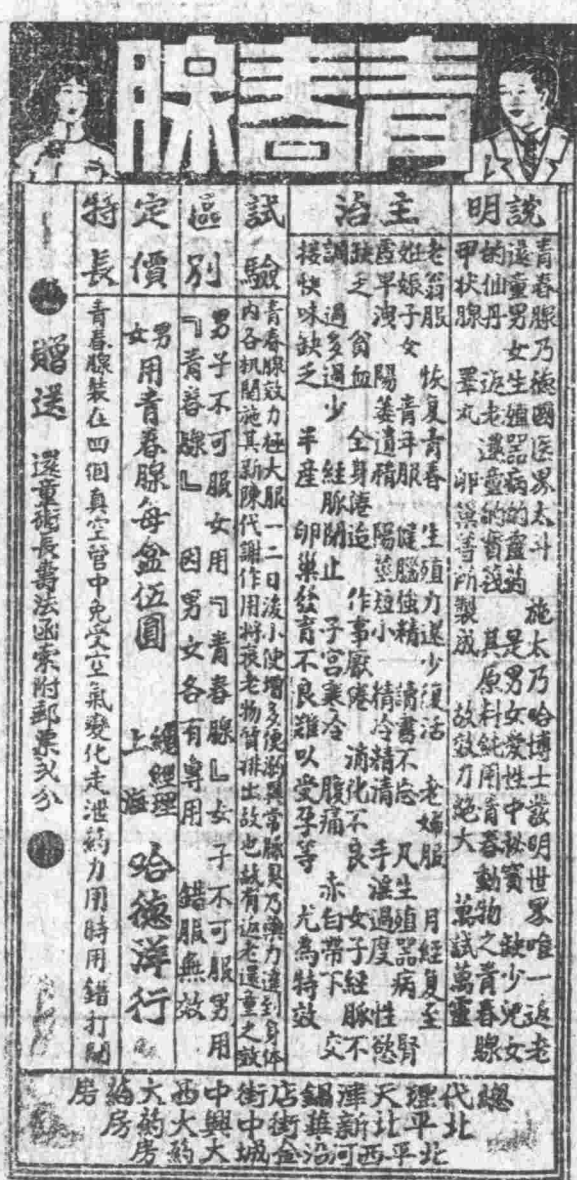 青春腺
說明
青春腺乃德國医界太斗 施太乃哈博士發明世界唯一返老
還童男女生殖器病的靈药 是男女愛性中秘寶 缺少兒女
的仙丹 返老還童的寶筏 其原料純用青春動物之青春腺
甲状腺 睪丸 卵巢等所製成 故效力絶大 萬試萬靈
主治
老翁服 恢复青春 生殖力還少復活 老婦服 月經复至
妊娠子女 青年服 健腦強精 讀書不忘 凡生殖器病 腎
虧早洩 陽萎遺精 陽莖短小 精冷精清 手淫過度 性慾
缺乏 貧血 全身倦迨 作事厭倦 消化不良 女子經脈不
調 過多過少 經脈閉止 子宮寒冷 腹痛 赤白帶下 交
接快味缺乏 半産 卵巢發育不良難以受孕等 尤為特效
試驗
青春腺效力極大服一二日後小便增多便溺異常臊臭乃藥力達到身体
内各机関施其新陳代謝作用將衰老物質排出故也故有返老還童之效
區別
男子不可服女用『青春腺』女子不可服男用
『青春腺』因男女各有專用 錯服無效
定價
男女用青春腺每盒伍圓
總經理
上海
哈德洋行
特長
青春腺裝在四個真空管中免受空氣變化走泄葯力用時用錯打開
贈送 還童術長壽法函索附郵票弐分
總代理天津錫店街中西大药房
北平北新華街中興大药房
北平西河沿金城大药房